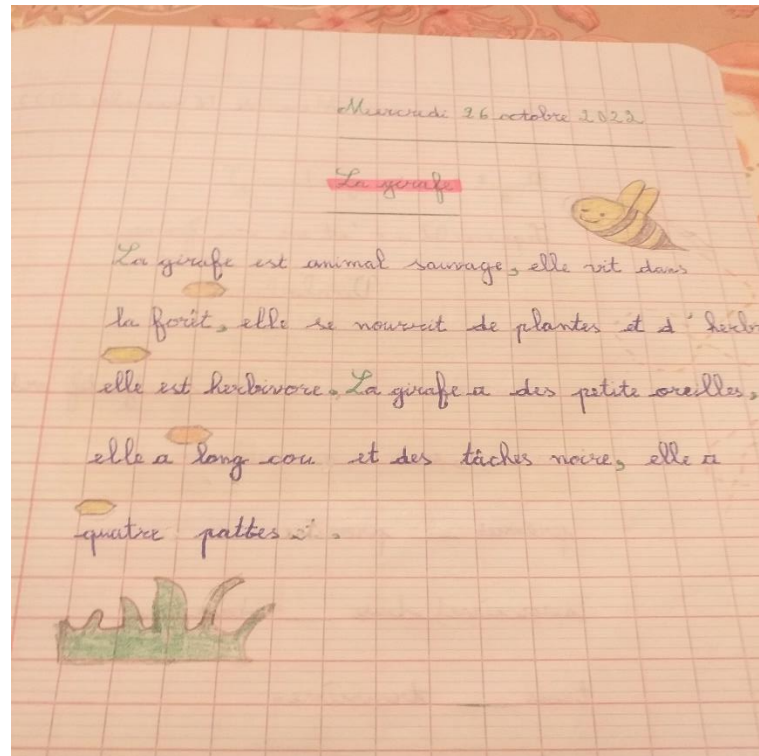 Mercredi 26 octobre 2022
La girafe
La girafe est animal sauvage, elle vit dans
la forêt, elle se nourrit de plantes et d'herb
elle est herbivore. La girafe a des petite oreilles,
elle a long cou et des tâches noire, elle a
quatre pattes.